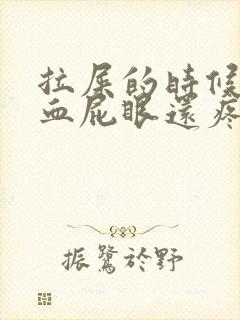 拉屎的時候
血屁眼還疼
振鷺於野